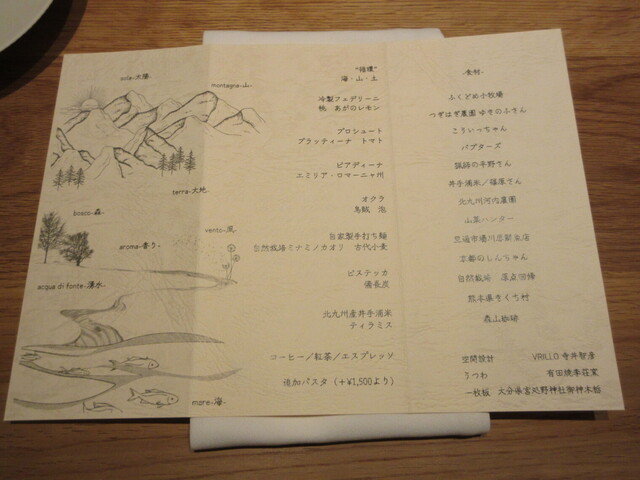 sole-太陽-
montagna-山-
terra-大地-
bosco-森-
vento-風-
aroma-香り-
acqua di fonte-湧水-
mare-海-
"循環"
海・山・土
冷製フェデリーニ
桃 あがのレモン
プロシュート
ブラッティーナ トマト
ピアディーナ
エミリア・ロマーニャ州
オクラ
烏賊 泡
自家製手打ち麺
自然栽培ミナミノカオリ 古代小麦
ビステッカ
備長炭
北九州産井手浦米
ティラミス
コーヒー／紅茶／エスプレッソ
追加パスタ（+¥1,500より）
-食材-
ふくどめ小牧場
つぎはぎ農園 ゆきのふさん
こういっちゃん
バブターズ
猟師の平野さん
井手浦米／篠原さん
北九州河内農園
山薫ハンター
京都のしんちゃん
自然栽培 原点回帰
熊本県きくち村
森山珈琲
空間設計 VRILLO 寺井智彦
うつわ 有田焼李荘窯
一枚板 大分県宮処野神社御神木栃